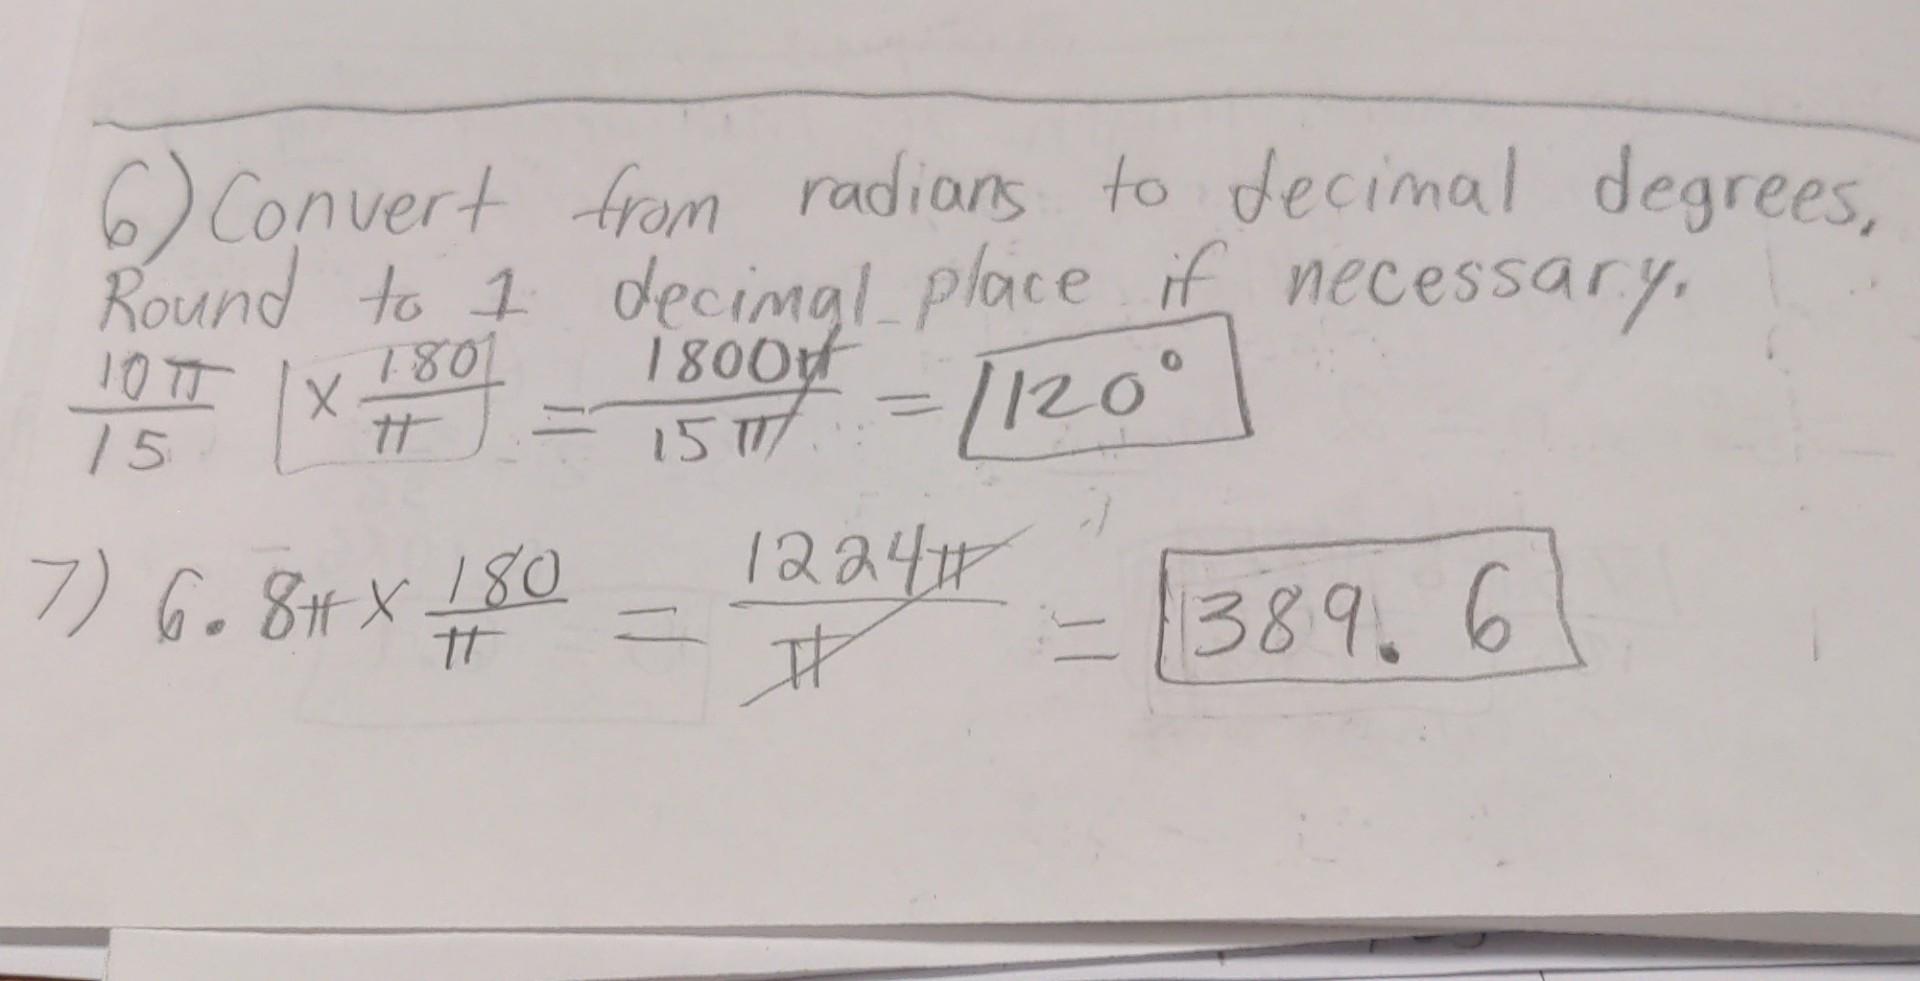 6) Convert from radians to decimal degrees.
Round to 1 decimal place if necessary.
10π/15 × 180/π = 1800π/15π = 120°
7) 6.8π × 180/π = 1224π/π = 389.6